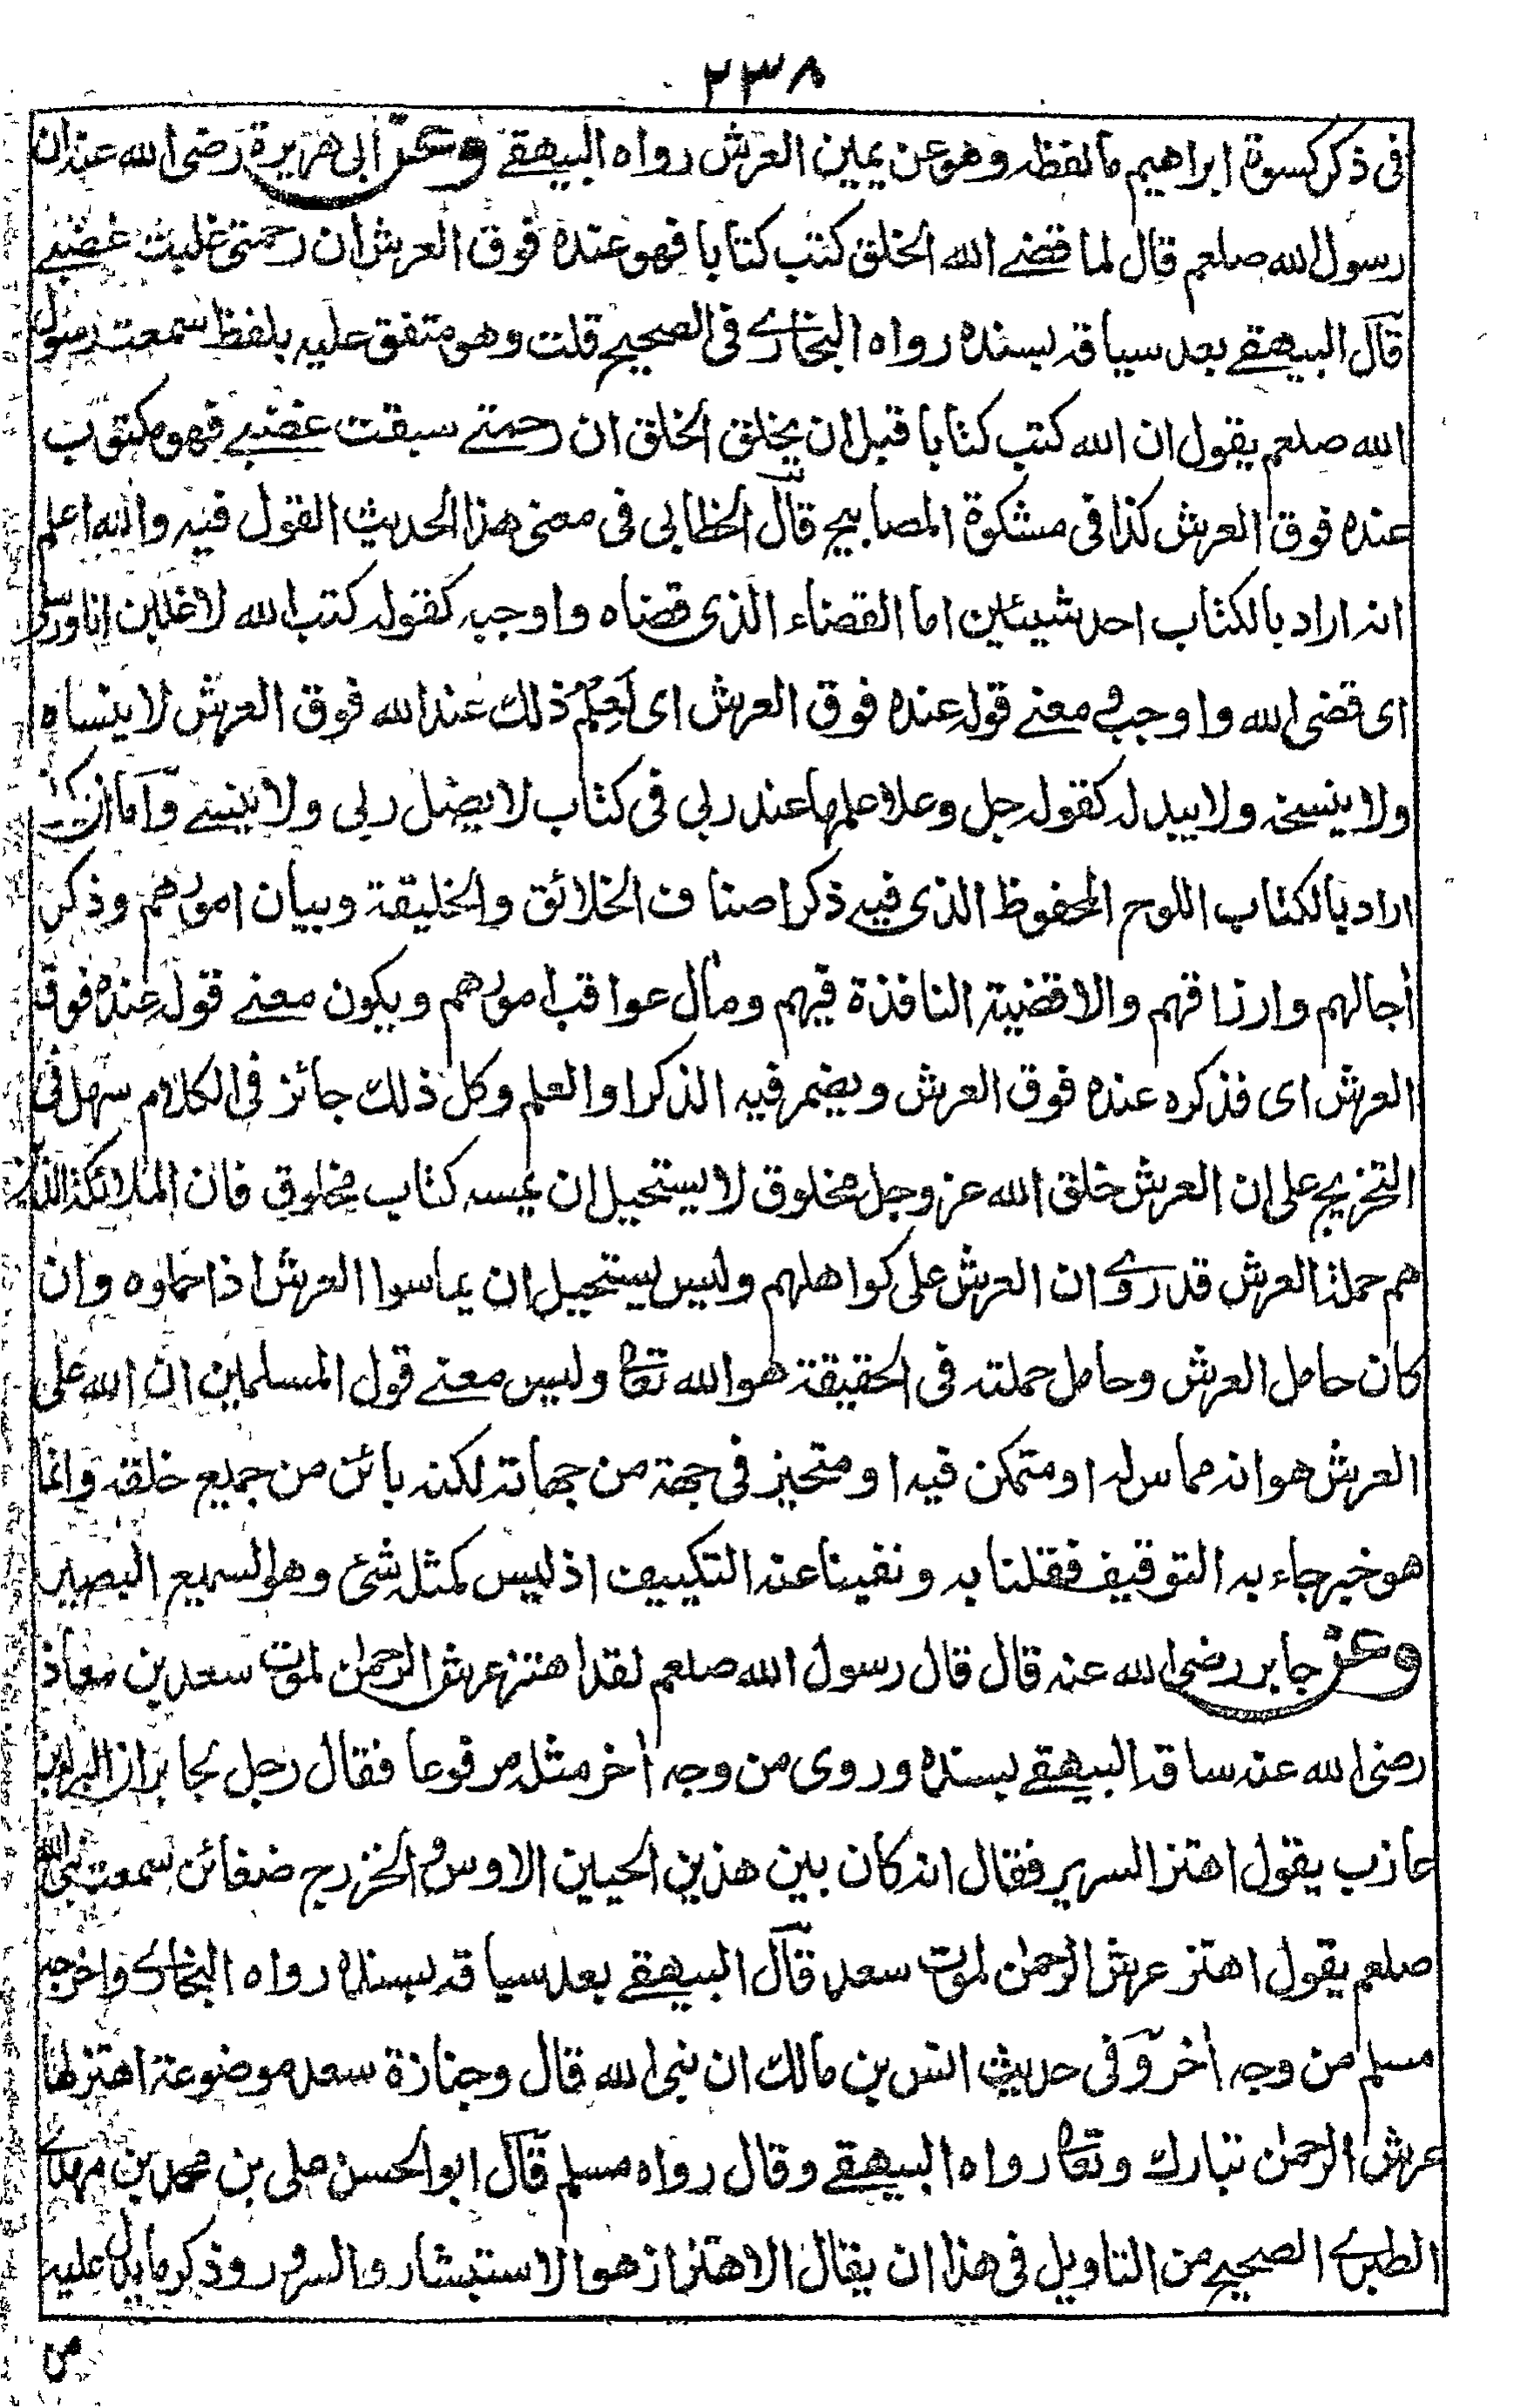 ٢٣٨
فى ذكر كسوة ابراهيم ما لفظه وهو عن يمين العرش رواه البيهقے وعن ابى هريرة رضى الله عنه ان
رسول الله صلعم قال لما قضے الله الخلق كتب كتابا فهو عنده فوق العرش ان رحمتى غلبت غضبے
قال البيهقے بعد سياقه بسنده رواه البخارے فى الصحيح قلت وهو متفق عليه بلفظ سمعت رسول
الله صلعم يقول ان الله كتب كتابا قبل ان يخلق الخلق ان رحمتے سبقت غضبے فهو مكتوب
عنده فوق العرش كذا فى مشكوة المصابيح قال الخطابى فى معنى هذا الحديث القول فيه والله اعلم
انه اراد بالكتاب احد شيئين اما القضاء الذى قضاه واوجبه كقوله كتب الله لاغلبن انا ورسلى
اى قضى الله واوجب و معنے قوله عنده فوق العرش اى فعِلْمُ ذلك عند الله فوق العرش لا ينساه
ولا ينسخه ولا يبدله كقوله جل وعلا علمها عند ربى فى كتاب لا يضل ربى ولا ينسے واما ان يكون
اراد بالكتاب اللوح المحفوظ الذى فيه ذكر اصناف الخلائق والخليقة وبيان امورهم وذكر
أجالهم وارزاقهم والاقضية النافذة فيهم ومأل عواقب امورهم ويكون معنے قوله عنده فوق
العرش اى فذكره عنده فوق العرش ويضمر فيه الذكر او العلم وكل ذلك جائز فى الكلام سهل فى
التخريج على ان العرش خلق الله عز وجل مخلوق لا يستحيل ان يمسه كتاب مخلوق فان الملائكة الذين
هم حملة العرش قد روے ان العرش على كواهلهم وليس يستحيل ان يماسوا العرش اذا حملوه وان
كان حامل العرش وحامل حملته فى الحقيقة هو الله تعا وليس معنے قول المسلمين ان الله على
العرش هو انه مماس له او متمكن فيه او متحيز فى جهة من جهاته لكنه بائن من جميع خلقه وانما
هو خبر جاء به التوقيف فقلنا به ونفينا عنه التكييف اذ ليس كمثله شئ وهو السميع البصير
وعن جابر رضى الله عنه قال قال رسول الله صلعم لقد اهتز عرش الرحمٰن لموت سعد بن معاذ
رضى الله عنه ساقه البيهقے بسنده وروى من وجه أخر مثله مرفوعا فقال رجل لجابر ان البراء بن
عازب يقول اهتز السرير فقال انه كان بين هذين الحيين الاوس و الخزرج ضغائن سمعت نبى الله
صلعم يقول اهتز عرش الرحمٰن لموت سعد قال البيهقے بعد سياقه بسنده رواه البخارے واخرجه
مسلم من وجه أخر وفى حديث انس بن مالك ان نبى الله قال وجنازة سعد موضوعة اهتز لها
عرش الرحمٰن تبارك وتعا رواه البيهقے وقال رواه مسلم قال ابو الحسن على بن محمد بن مهدے
الطبرے الصحيح من التاويل فى هذا ان يقال الاهتزاز هو الاستبشار والسرور وذكر ما يدل عليه
من